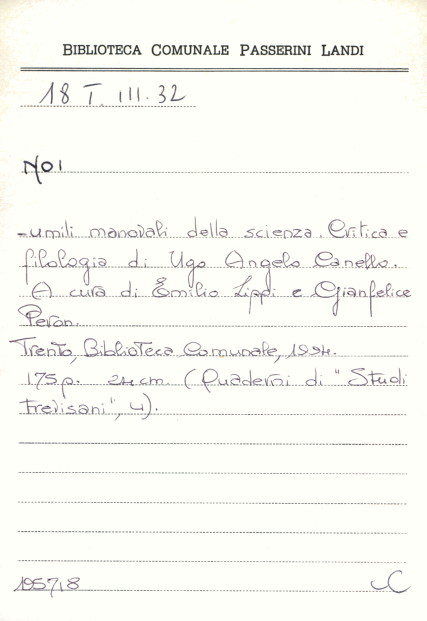 BIBLIOTECA COMUNALE PASSERINI LANDI
18 T. III. 32
NOI
-umili manovali della scienza. Critica e
filologia di Ugo Angelo Canello.
A cura di Emilio Lippi e Gianfelice
Peron.
Trento, Biblioteca Comunale, 1994.
175 p. 24 cm. (Quaderni di "Studi
trevisani", 4).
195718